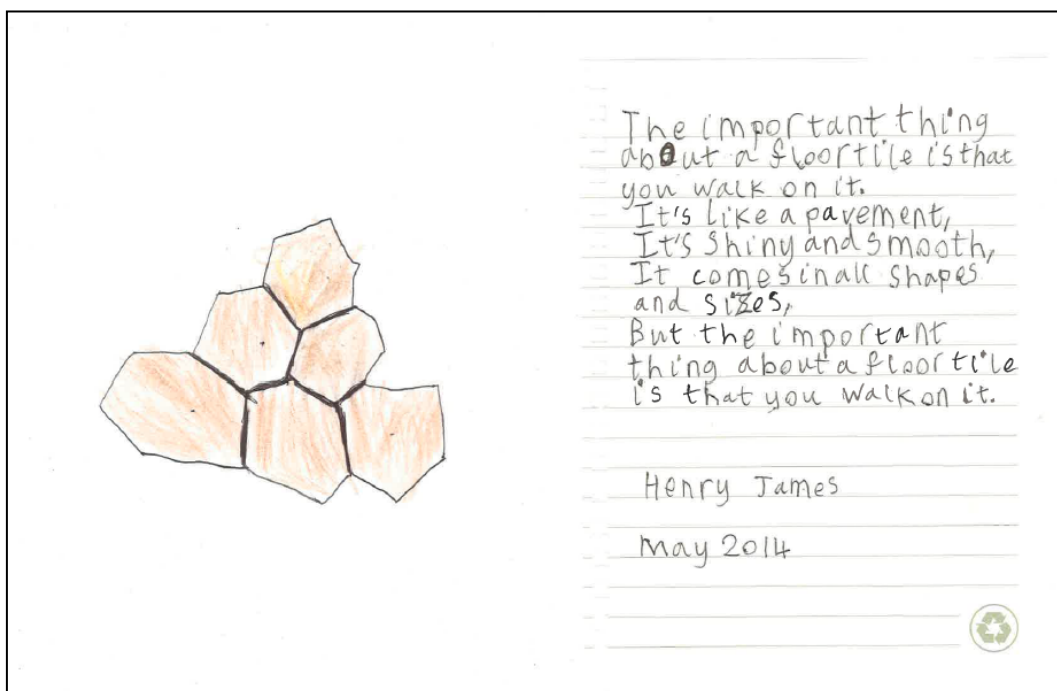 The important thing
about a floor tile is that
you walk on it.
It's like a pavement,
It's shiny and smooth,
It comes in all shapes
and sizes,
But the important
thing about a floor tile
is that you walk on it.
Henry James
May 2014